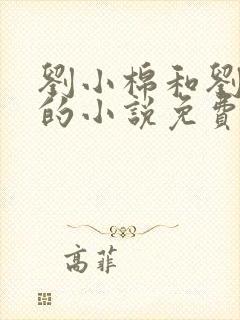 劉小棉和劉
的小說免費
高菲